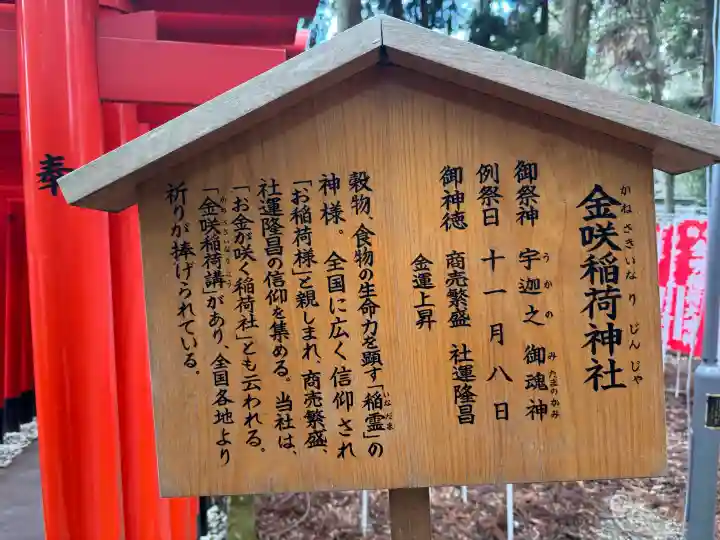 金咲稲荷神社
かねさきいなりじんじゃ
御祭神 宇迦之御魂神
うかのみたまのかみ
例祭日 十一月八日
御神徳 商売繁盛 社運隆昌
金運上昇
穀物、食物の生命力を顕す「稲霊」の
いなだま
神様。全国に広く信仰され
「お稲荷様」と親しまれ、商売繁盛、
社運隆昌の信仰を集める。当社は、
「お金が咲く稲荷社」とも云われる。
「金咲稲荷講」があり、全国各地より
かねさきいなりこう
祈りが捧げられている。
奉